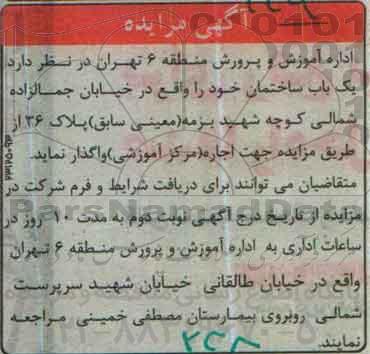 آگهی مزایده
اداره آموزش و پرورش منطقه ۶ تهران در نظر دارد
یک باب ساختمان خود را واقع در خیابان جمالزاده
شمالی کوچه شهید بزمه(معینی سابق)پلاک ۳۶ از
طریق مزایده جهت اجاره(مرکز آموزشی)واگذار نماید.
متقاضیان می توانند برای دریافت شرایط و فرم شرکت در
مزایده از تاریخ درج آگهی نوبت دوم به مدت ۱۰ روز در
ساعات اداری به اداره آموزش و پرورش منطقه ۶ تهران
واقع در خیابان طالقانی خیابان شهید سرپرست
شمالی روبروی بیمارستان مصطفی خمینی مراجعه
نمایند.
ParsNamadData